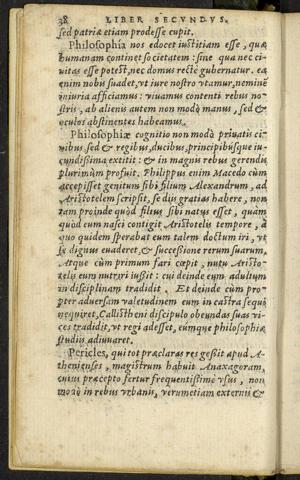 38 LIBER SECVNDVS.
sed patriæ etiam prodesse cupit.
Philosophia nos edocet iustitiam esse, quæ
humanam continet societatem: sine qua nec ci-
uitas esse potest, nec domus recte gubernatur. ea
enim nobis suadet, vt iure nostro vtamur, nemini
iniuria afficiamus: viuamus contenti rebus no-
stris, ab alienis autem non modò manus, sed &
oculos abstinentes habeamus.
Philosophiæ cognitio non modò priuatis ci-
uibus sed & regibus, ducibus, principibusque iu-
cundissima extitit: & in magnis rebus gerendis
plurimùm profuit. Philippus enim Macedo cùm
accepisset genitum sibi filium Alexandrum, ad
Aristotelem scripsit, se dijs gratias habere, non
tam proinde quòd filius sibi natus esset, quàm
quòd eum nasci contigit Aristotelis tempore, à
quo quidem sperabat eum talem doctum iri, vt
se dignus euaderet, & successione rerum suarum.
Atque cùm primum fari cœpit, nutu Aristo-
telis eum nutriri iussit: cui deinde eum adultum
in disciplinam tradidit. Et deinde cùm pro-
pter aduersam valetudinem eum in castra sequi
nequiret, Callistheni discipulo obeundas suas vi-
ces tradidit, vt regi adesset, eumque philosophiæ
studijs adiuuaret.
Pericles, qui tot præclaras res gessit apud A-
thenienses, magistrum habuit Anaxagoram,
cuius præcepto fertur frequentissimè vsus, non
modò in rebus vrbanis, verumetiam externis &